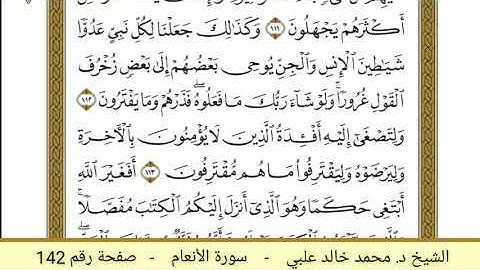 أَكْثَرَهُمْ يَجْهَلُونَ ١١١ وَكَذَٰلِكَ جَعَلْنَا لِكُلِّ نَبِيٍّ عَدُوًّا
شَيَٰطِينَ ٱلْإِنسِ وَٱلْجِنِّ يُوحِى بَعْضُهُمْ إِلَىٰ بَعْضٍ زُخْرُفَ
ٱلْقَوْلِ غُرُورًا ۚ وَلَوْ شَآءَ رَبُّكَ مَا فَعَلُوهُ ۖ فَذَرْهُمْ وَمَا يَفْتَرُونَ ١١٢
وَلِتَصْغَىٰٓ إِلَيْهِ أَفْـِٔدَةُ ٱلَّذِينَ لَا يُؤْمِنُونَ بِٱلْءَاخِرَةِ
وَلِيَرْضَوْهُ وَلِيَقْتَرِفُوا۟ مَا هُم مُّقْتَرِفُونَ ١١٣ أَفَغَيْرَ ٱللَّهِ
أَبْتَغِى حَكَمًا وَهُوَ ٱلَّذِىٓ أَنزَلَ إِلَيْكُمُ ٱلْكِتَٰبَ مُفَصَّلًا ۚ
الشيخ د. محمد خالد علبي - سورة الأنعام - صفحة رقم 142